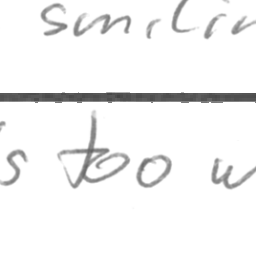 smilin
s too w